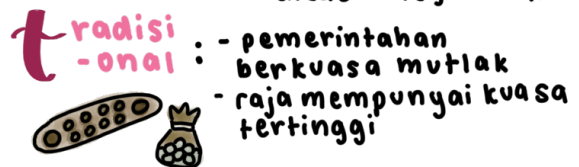 tradisi
-onal : - pemerintahan
berkuasa mutlak
- raja mempunyai kuasa
tertinggi